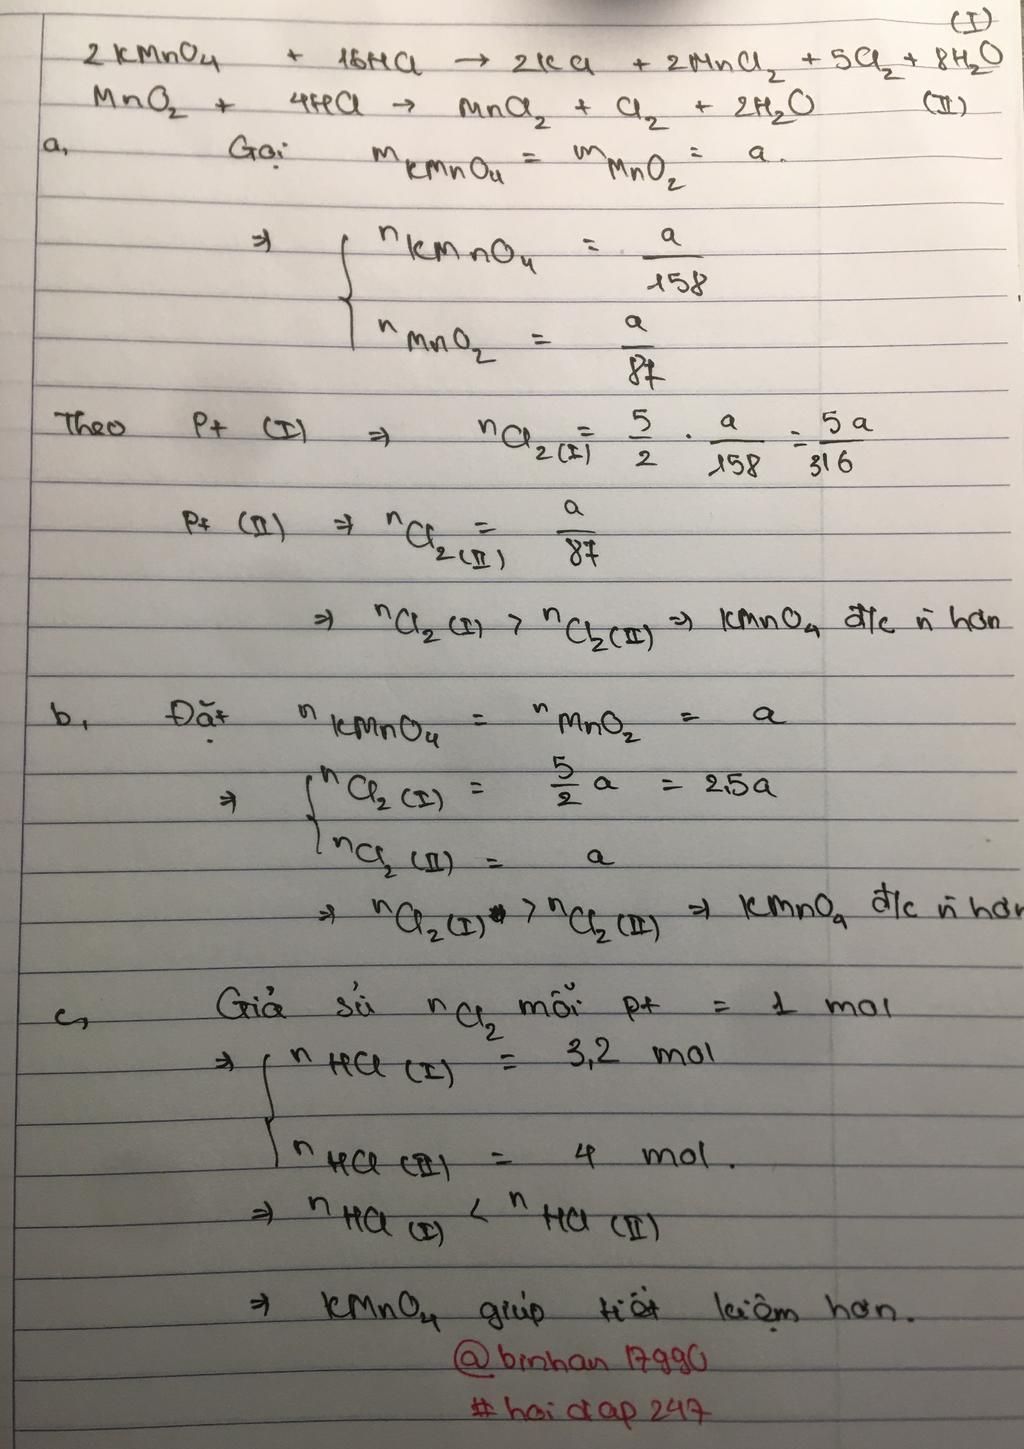 (I)
2KMnO₄ + 16HCl → 2KCl + 2MnCl₂ + 5Cl₂ + 8H₂O
MnO₂ + 4HCl → MnCl₂ + Cl₂ + 2H₂O (II)
a, Gọi mKMnO₄ = mMnO₂ = a.
⇒ { nKMnO₄ = a/158
nMnO₂ = a/87
Theo Pt (I) ⇒ nCl₂(I) = 5/2 . a/158 = 5a/316
Pt (II) ⇒ nCl₂(II) = a/87
⇒ nCl₂(I) > nCl₂(II) ⇒ KMnO₄ đ/c ñ hơn
b, Đặt nKMnO₄ = nMnO₂ = a
⇒ { nCl₂(I) = 5/2 a = 2,5a
nCl₂(II) = a
⇒ nCl₂(I) > nCl₂(II) ⇒ KMnO₄ đ/c ñ hơn
c, Giả sử nCl₂ mỗi pt = 1 mol
⇒ { nHCl (I) = 3,2 mol
nHCl (II) = 4 mol.
⇒ nHCl (I) < nHCl (II)
⇒ KMnO₄ giúp tiết kiệm hơn.
@binhan17990
#hoidap247